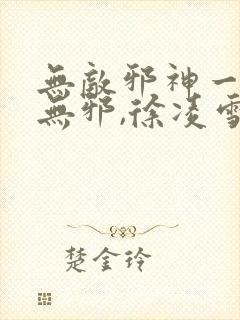 無敵邪神一
無邪,徐凌雪
楚金玲